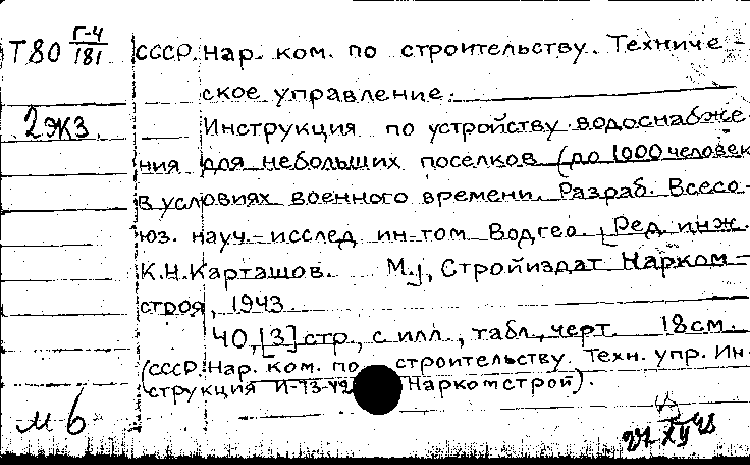 Т80 Г-4/181
СССР. Нар. ком. по строительству. Техниче-
ское управление.
2 экз.
Инструкция по устройству водоснабже-
ния для небольших поселков (до 1000 человек
в условиях военного времени. Разраб. Всесо-
юз. науч.-исслед. ин-том Водгео. [Ред. инж.
К.Н. Карташов. М., Стройиздат Нарком-
строя, 1943.
40, [3] стр., с илл., табл., черт. 18 см.
(СССР. Нар. ком. по строительству. Техн. упр. Ин-
струкция И-73-42 Наркомстрой).
м б